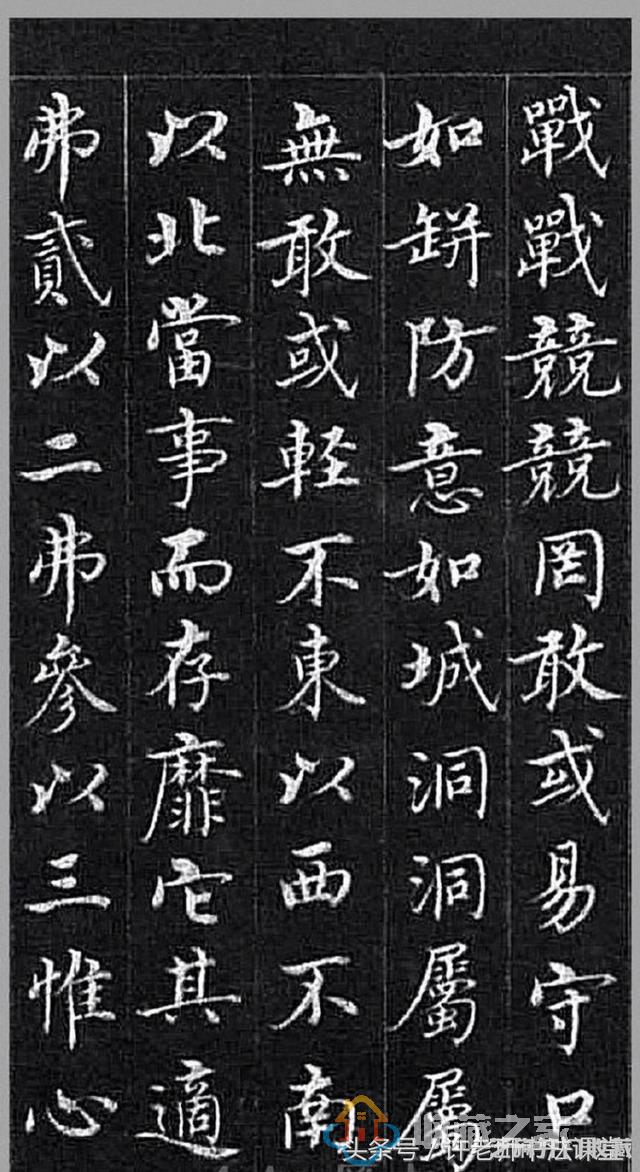 戰戰競競罔敢或易守口
如缾防意如城洞洞屬屬
無敢或軽不東以西不南
以北當事而存靡它其適
弗貳以二弗參以三惟心
头条号